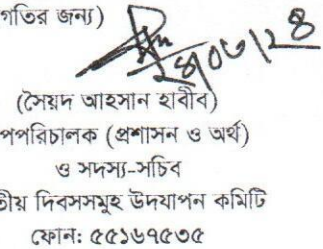 গতির জন্য)
২৪/০৩/২৪
(সৈয়দ আহসান হাবীব)
পপরিচালক (প্রশাসন ও অর্থ)
ও সদস্য-সচিব
তীয় দিবসসমুহ উদযাপন কমিটি
ফোন: ৫৫১৬৭৫৩৫